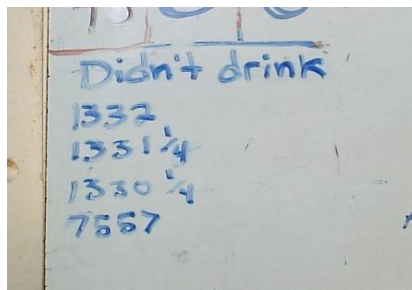 Didn't drink
1332
1331 1/4
1330 1/4
7557